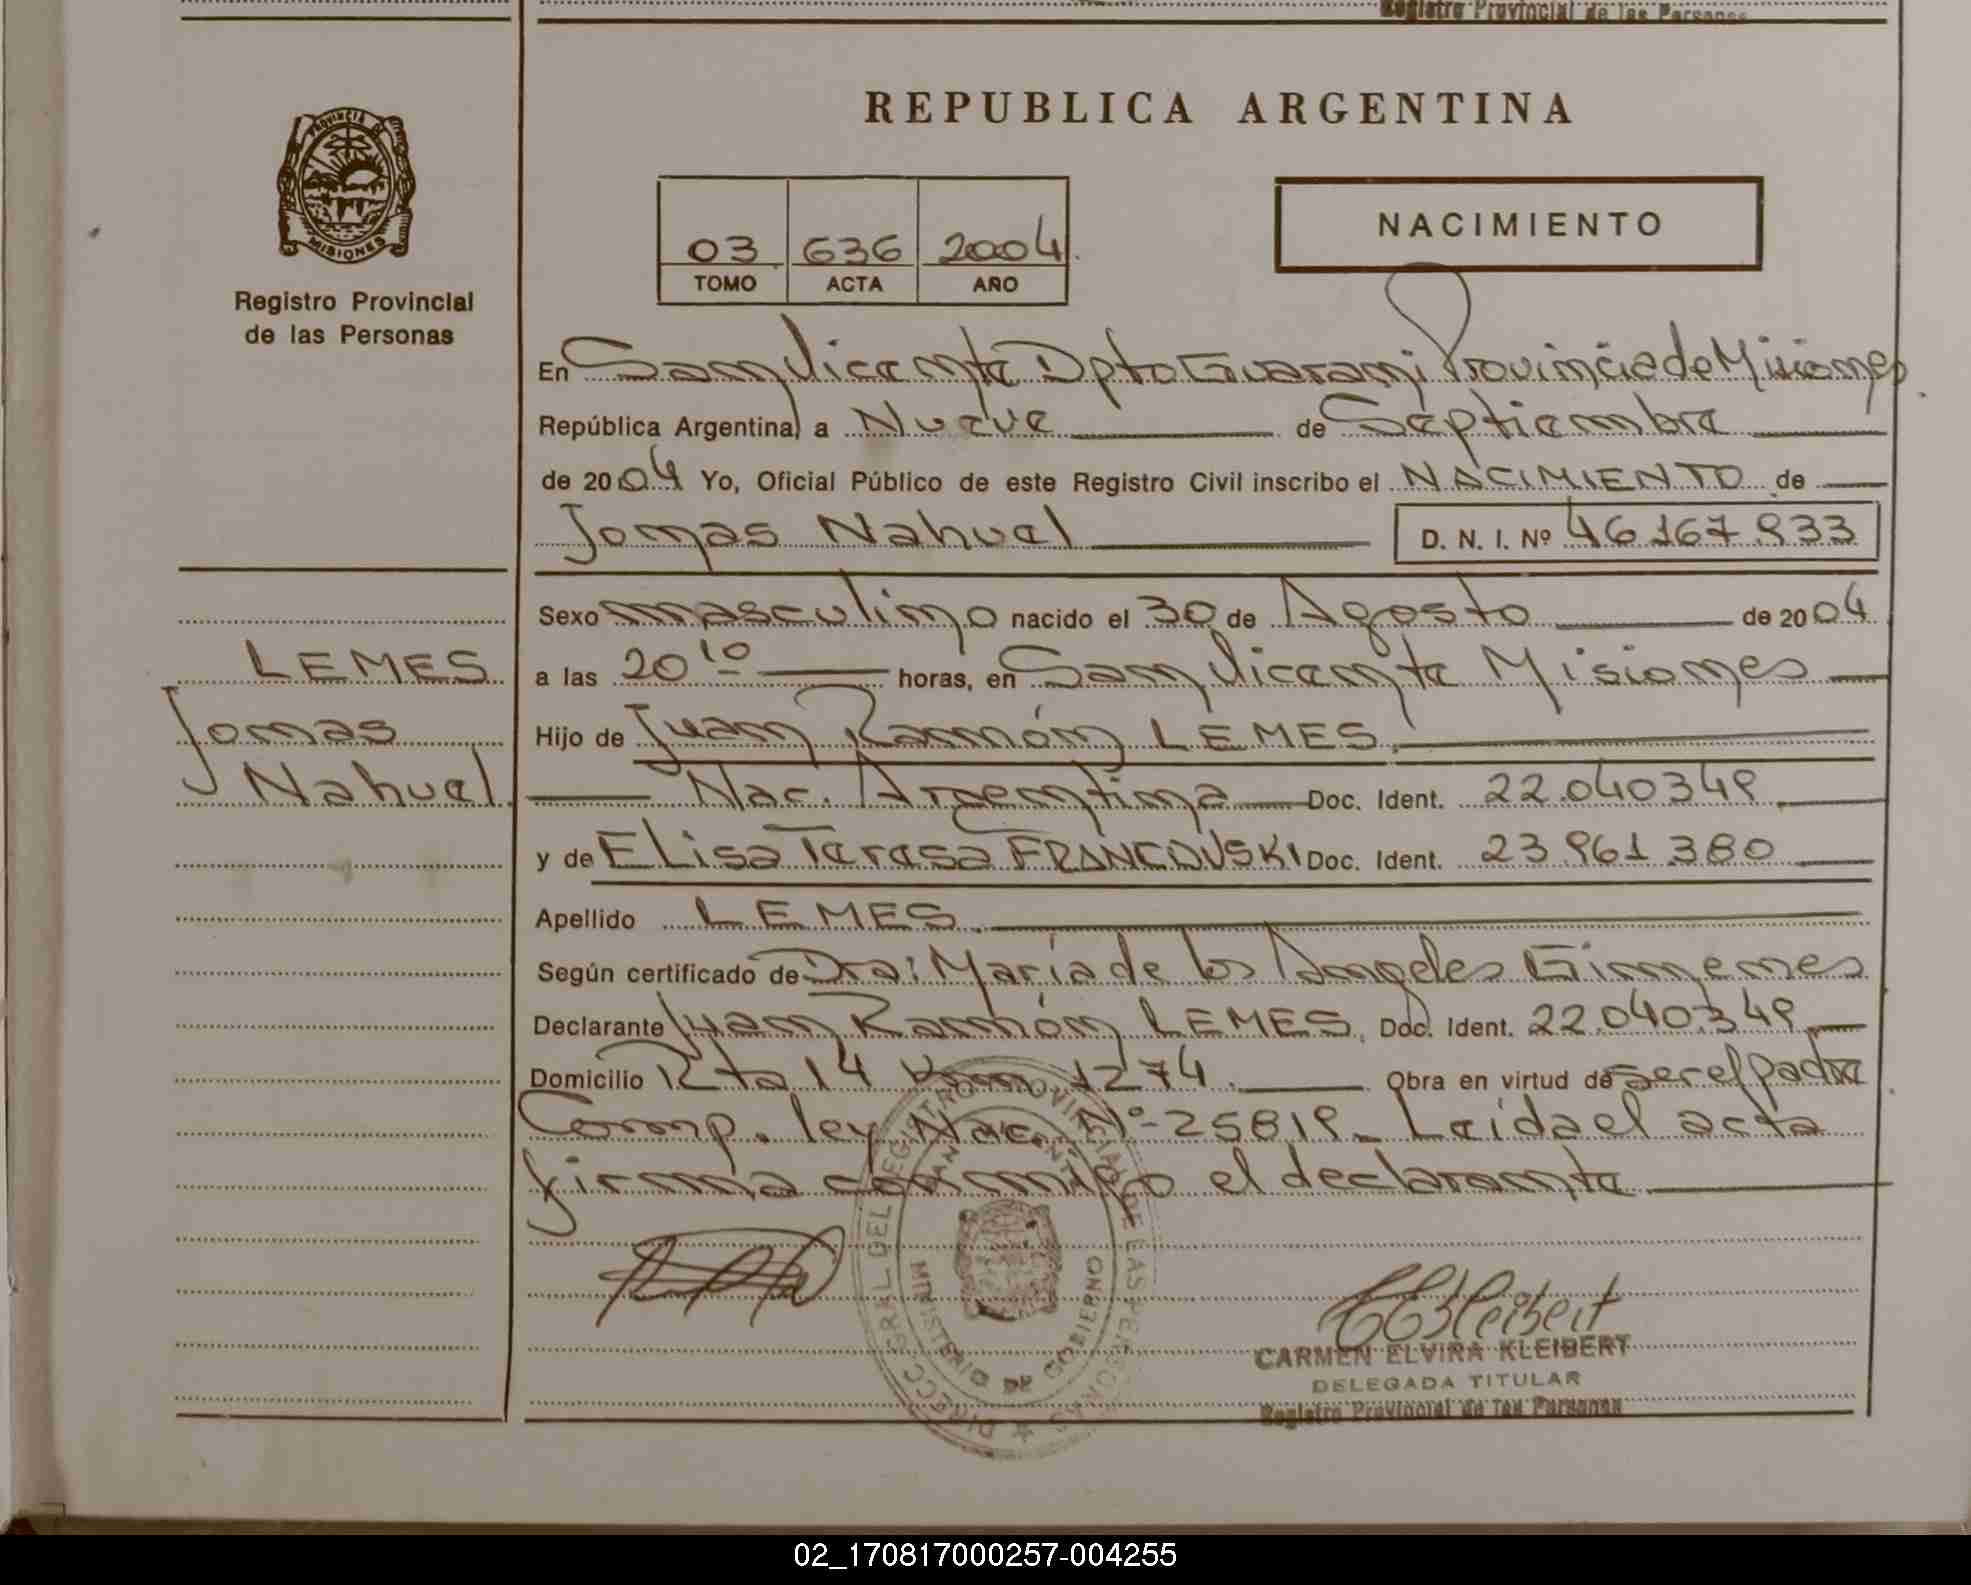 Registro Provincial de las Personas
REPUBLICA ARGENTINA
PROVINCIA DE
MISIONES
Registro Provincial
de las Personas
03 636 2004
TOMO ACTA AÑO
NACIMIENTO
En San Vicente Dpto Guarani Provincia de Misiones
República Argentina, a Nueve de Septiembre
de 2004 Yo, Oficial Público de este Registro Civil inscribo el NACIMIENTO de
Tomas Nahuel D. N. I. Nº 46.167.933
Sexo masculino nacido el 30 de Agosto de 2004
a las 20 10 horas, en San Vicente Misiones
Hijo de Juan Ramón LEMES.
Nac. Argentina Doc. Ident. 22.040349
y de Elisa Teresa FRANCOUSKI Doc. Ident. 23.961.380
Apellido LEMES.
Según certificado de Dra: María de los Angeles Gimenes
Declarante Juan Ramón LEMES, Doc. Ident. 22.040.349
Domicilio Rta 14 Km 1274. Obra en virtud de ser el padre
Comp. ley Nac. Nº 25819. Leída el acta
firma conmigo el declarante
LEMES
Tomas
Nahuel.
DIRECC. GRAL DEL REGISTRO PROVINCIAL DE LAS PERSONAS
MINISTERIO DE GOBIERNO
CEKleibert
CARMEN ELVIRA KLEIBERT
DELEGADA TITULAR
Registro Provincial de las Personas
02_170817000257-004255